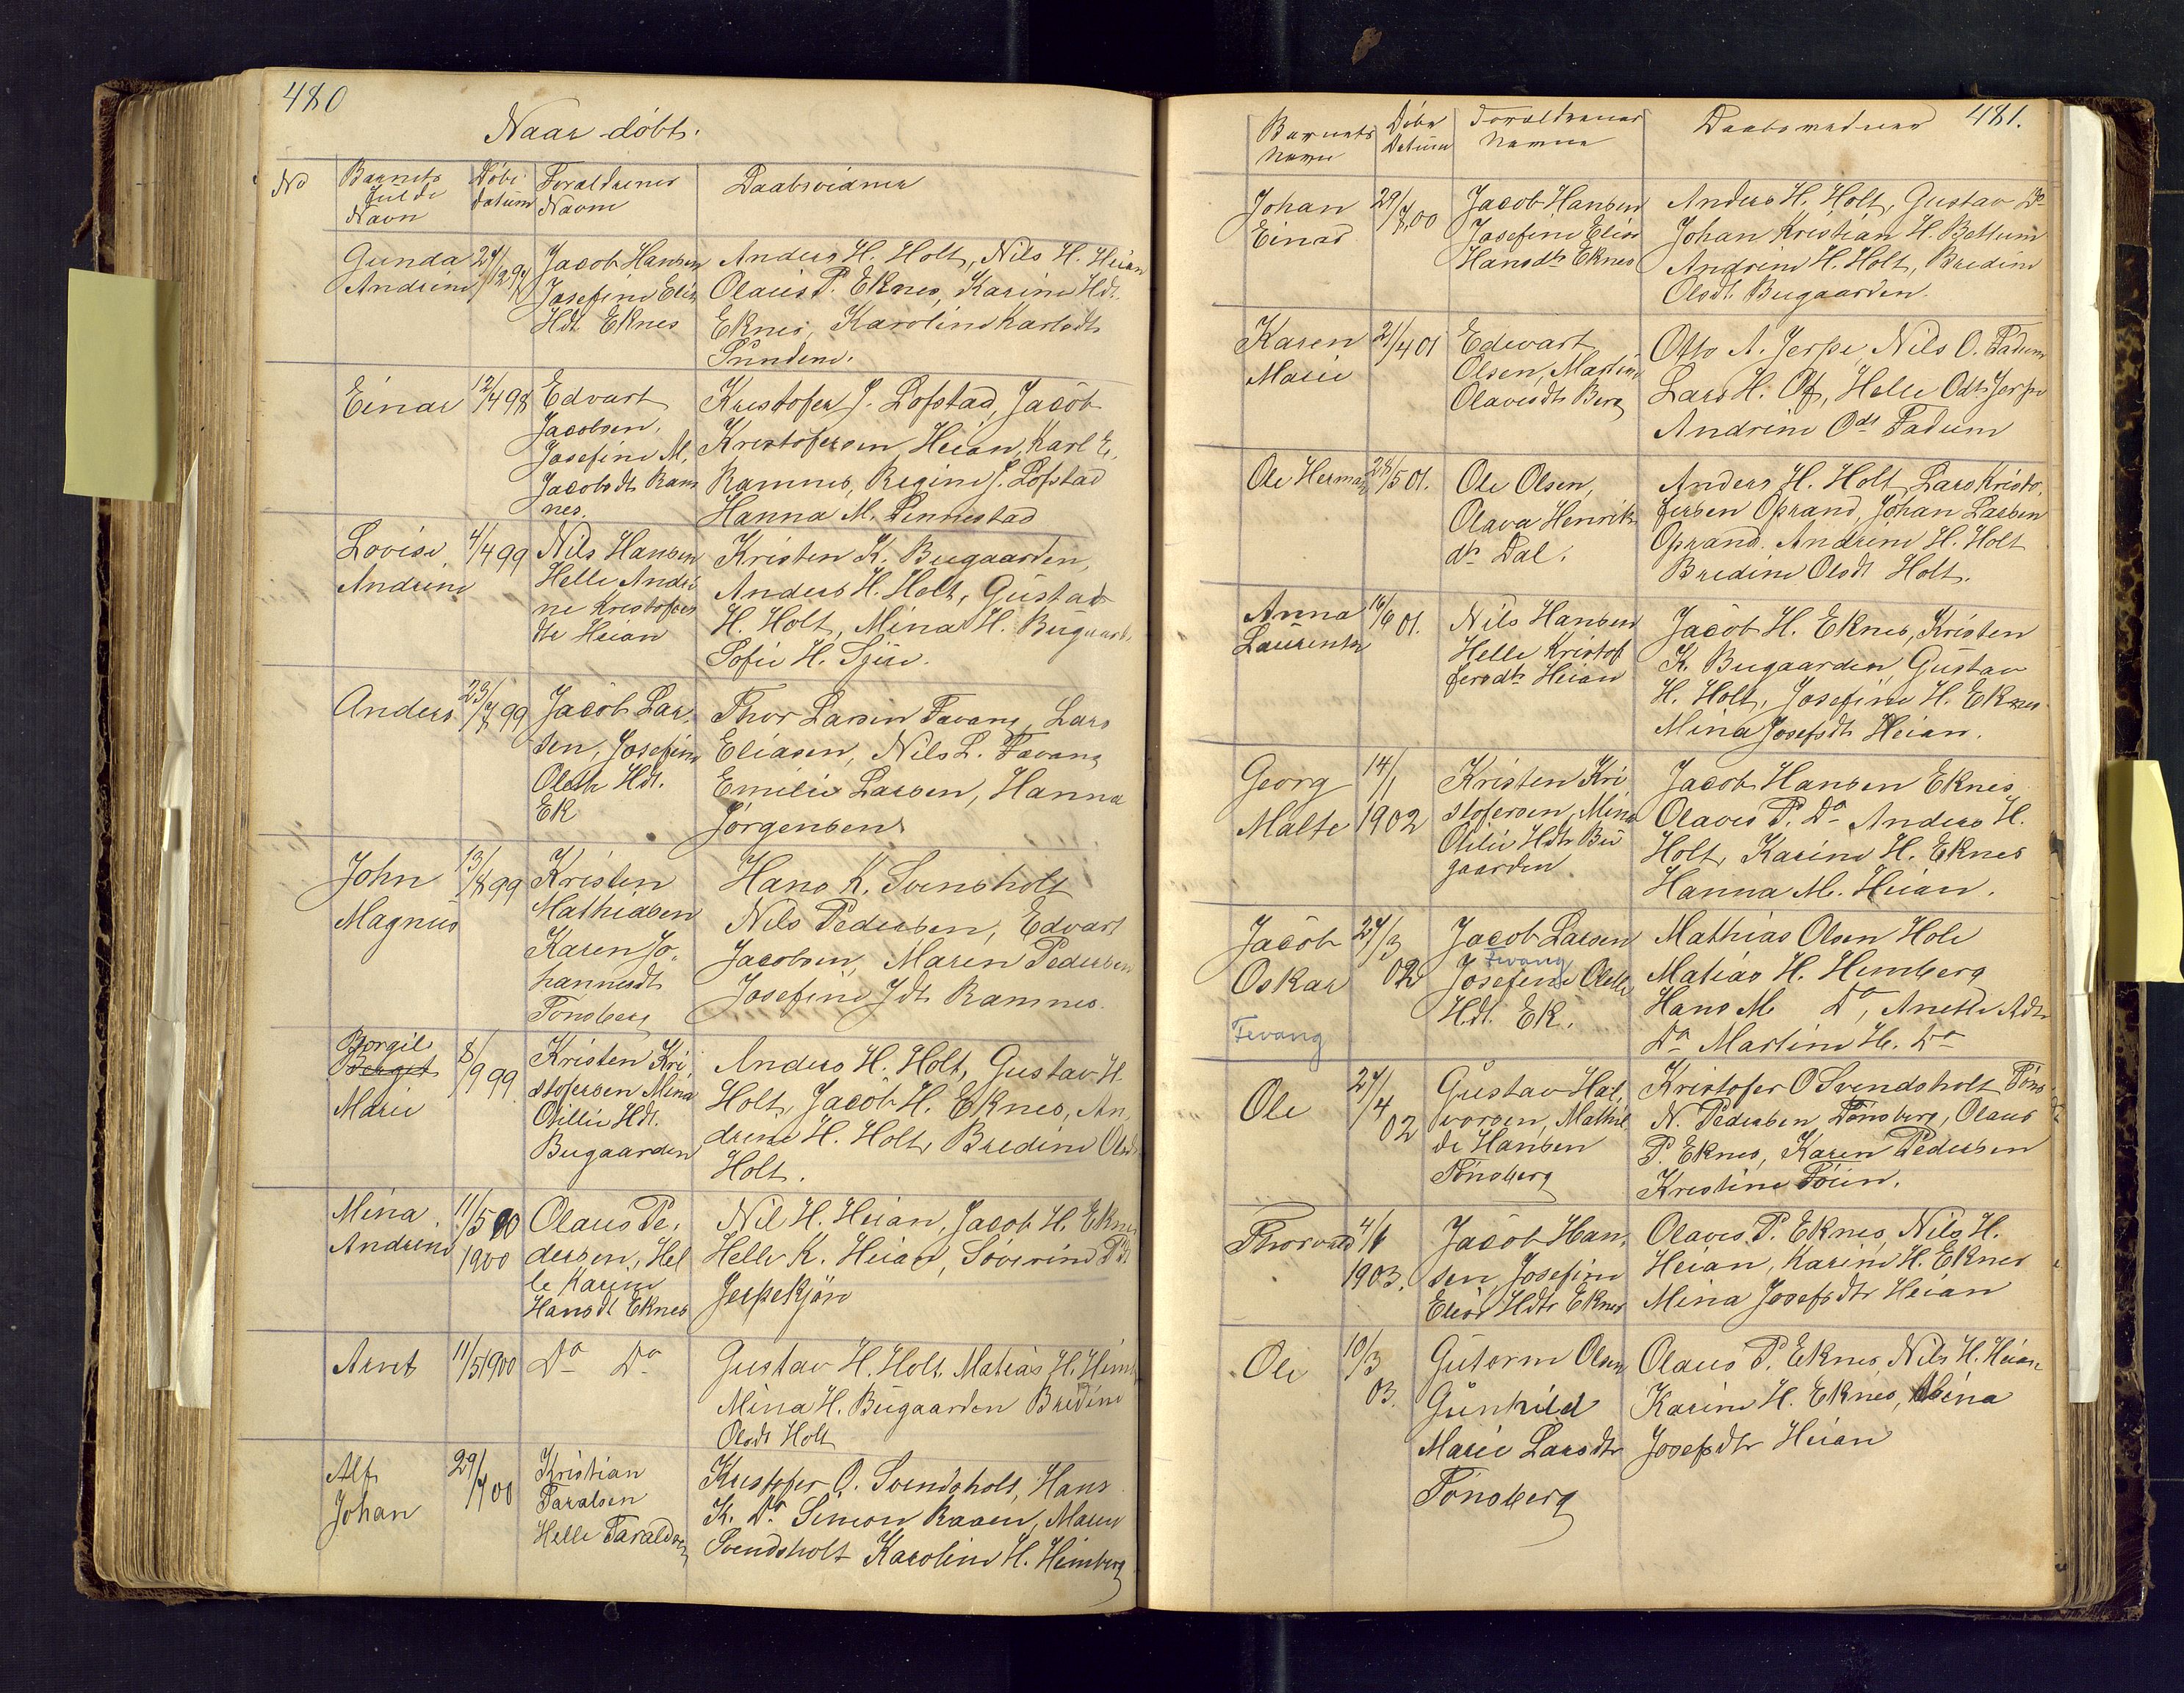 480
Naar døbt.
No Barnets fulde Navn Døbe datum Foraldrenes Navne Daabsvidner
Gunda Andrine
Jacob Hansen
Josefine Elise
Hdt Eknes
Anders H. Holt, Nils H. Heian
Olaus P. Eknes, Karine Hdt.
Eknes, Karoline Karlsdt
Sundene.
Einar 12/4 98
Edvart
Jacobsen,
Josefine M.
Jacobsdt Ram
nes.
Kristofer J. Lofstad, Jacob
Kristofersen, Heian, Karl E.
Ramnes, Regine J. Lofstad
Hanna M. Linnestad
Lovise Andrine 4/4 99
Nils Hansen
Helle Andri
ne Kristofers
dtr Heian
Kristen K. Bugaarden,
Anders H. Holt, Gustav
H. Holt, Mina H. Bugaard.
Sofie H.
Anders
Jacob Lar,
sen, Josefine
Oleth Hdt.
Ek
Thor Larsen Tavang, Lars
Eliasen, Nils L. Tavang
Emilie Larsen, Hanna
Jörgensen
John Magnus 13/8 99
Kristen
Mathiasen
Karen Jo,
hannesdt
Tönsberg
Hans K. Svensholt
Nils Pedersen, Edvart
Jacobsen, Maren Pedersen
Josefine Jdt Ramnes.
Borgil
Berget
Marie 8/9 99.
Kristen Kri,
stofersen Mina
Otillie Hdt.
Bugaarden
Anders H. Holt, Gustav H.
Holt, Jacob H. Eknes, An,
drene H. Holt, Bredine Olsdt
Holt.
Mina Andrine 11/5 00
1900
Olaus Pe,
dersen, Hel
le Karine
Hansdt Eknes
Nil H. Heian, Jacob H. Eknes
Helle K. Heian, Søverine
Jerpekjøn
Arnt 11/5 1900
Do Do
Gustav H. Holt, Matias H. Himb
Mina H. Bugaarden Bredine
Olsdt Holt
Alf Johan 29/7 00
Kristian
Taralsen
Helle Taraldsen
Kristofer O. Svendsholt, Hans
K. Do Simon Raaen, Maren
Svendsholt Karoline H. Himberg
481.
Barnets Navn Døbe Datum Foraldrenes Navne
Johan Einar 29/7 00
Jacob Hansen
Josefine Elise
Hansdt Eknes
Anders H. Holt, Gustav Do
Johan Kristian H. Bettum
Andrine H. Holt, Bredine
Olsdt. Bugaarden.
Karen Marie 21/4 01
Edevart
Olsen, Martine
Olavesdt Berg
Otto A. Jerpe Nils O. Fadum
Lars H. Of, Helle Odt Jerpe
Andrine Odt Fadum
Ole Herman 28/5 01.
Ole Olsen,
Olava Henrik
dtr Dal.
Anders H. Holt Lars Kristo,
fersen Oprand, Johan Larsen
Oprand. Andrine H. Holt
Bredine Olsdt Holt.
Anna Laurentse 16/6 01.
Nils Hansen
Helle Kristof
fersdtr Heian
Jacob H. Eknes, Kristen
K. Bugaarden, Gustav
H. Holt, Josefine H. Eknes
Mina Josefsdt Heian.
Georg Malfe 14/1
1902
Kristen Kri
stofersen, Mina
Otilie Hdtr Bu
gaarden
Jacob Hansen Eknes
Olaves P. Do Anders H.
Holt, Karine H. Eknes
Hanna M. Heian.
Jacob Oskar 27/3
02
Tevang
Jacob Larsen
Tevang
Josefine Olette
Hdt. Ek.
Mathias Olsen Hole
Matias H. Himberg
Hans M. Do, Anette Adtr
Do Martine H. Do
Ole 27/4
02
Gustav Hal,
vorsen, Mathil
de Hansen
Tönsberg
Kristofer O Svendsholt Töns
N. Pedersen Tönsberg, Olaus
P. Eknes, Karen Pedersen
Kristine Töien.
Thorvald 4/1
1903.
Jacob Han,
sen, Josefine
Elise Hdtr Eknes
Olaves P. Eknes, Nils H.
Heian, Karine H. Eknes
Mina Josefsdtr Heian
Ole 10/3
03.
Gutorm Olsen
Gunhild
Marie Larsdtr
Tönsberg
Olaus P. Eknes, Nils H. Heian
Karine H. Eknes, Mina
Josefsdtr Heian